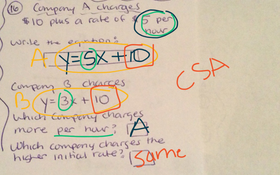 16 Company A charges
$10 plus a rate of $5 per
hour
Write the equation:
A y=5x+10
Company B charges
B y=3x+10
Which company charges
more per hour? A
Which company charges the
higher initial rate? Same
CSA